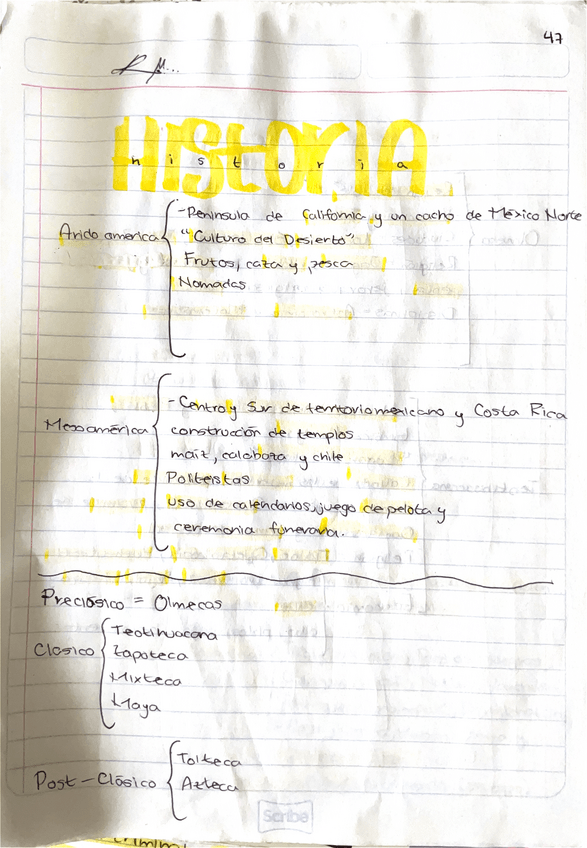 47
HISTORIA
historia
Arido america
-Peninsula de California y un cacho de México Norte
"Cultura del Desierto"
Frutos, caza y pesca
Nomadas
Mesoamérica
-Centro y Sur de territorio mexicano y Costa Rica
construcción de templos
maíz, calabaza y chile
Politeistas
uso de calendarios, juego de pelota y
ceremonia funeraria.
Preclásico = Olmecas
Clásico
Teotihuacana
Zapoteca
Mixteca
Maya
Post-Clásico
Tolteca
Azteca
Scribe